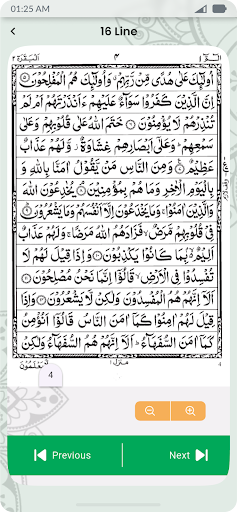 01:25 AM
16 Line
البقرة ٢
٤
الٓمّٓ ١
اُولٰٓئِكَ عَلٰى هُدًى مِّنْ رَّبِّهِمْ ۗ وَاُولٰٓئِكَ هُمُ الْمُفْلِحُوْنَ ۝
اِنَّ الَّذِيْنَ كَفَرُوْا سَوَآءٌ عَلَيْهِمْ ءَاَنْذَرْتَهُمْ اَمْ لَمْ
تُنْذِرْهُمْ لَا يُؤْمِنُوْنَ ۝ خَتَمَ اللّٰهُ عَلٰى قُلُوْبِهِمْ وَعَلٰى
سَمْعِهِمْ ؕ وَعَلٰٓى اَبْصَارِهِمْ غِشَاوَةٌ ؗ وَّلَهُمْ عَذَابٌ
عَظِيْمٌ ۝ وَمِنَ النَّاسِ مَنْ يَّقُوْلُ اٰمَنَّا بِاللّٰهِ وَ
بِالْيَوْمِ الْاٰخِرِ وَمَا هُمْ بِمُؤْمِنِيْنَ ۝ يُخٰدِعُوْنَ اللّٰهَ
وَالَّذِيْنَ اٰمَنُوْا ۚ وَمَا يَخْدَعُوْنَ اِلَّآ اَنْفُسَهُمْ وَمَا يَشْعُرُوْنَ ۝
فِيْ قُلُوْبِهِمْ مَّرَضٌ ۙ فَزَادَهُمُ اللّٰهُ مَرَضًا ۚ وَلَهُمْ عَذَابٌ
اَلِيْمٌۢ ۙ۬ بِمَا كَانُوْا يَكْذِبُوْنَ ۝ وَاِذَا قِيْلَ لَهُمْ لَا
تُفْسِدُوْا فِى الْاَرْضِ ۙ قَالُوْٓا اِنَّمَا نَحْنُ مُصْلِحُوْنَ ۝
اَلَآ اِنَّهُمْ هُمُ الْمُفْسِدُوْنَ وَلٰكِنْ لَّا يَشْعُرُوْنَ ۝ وَاِذَا
قِيْلَ لَهُمْ اٰمِنُوْا كَمَآ اٰمَنَ النَّاسُ قَالُوْٓا اَنُؤْمِنُ
كَمَآ اٰمَنَ السُّفَهَآءُ ؕ اَلَآ اِنَّهُمْ هُمُ السُّفَهَآءُ وَلٰكِنْ
منزل ١
4
Previous
Next